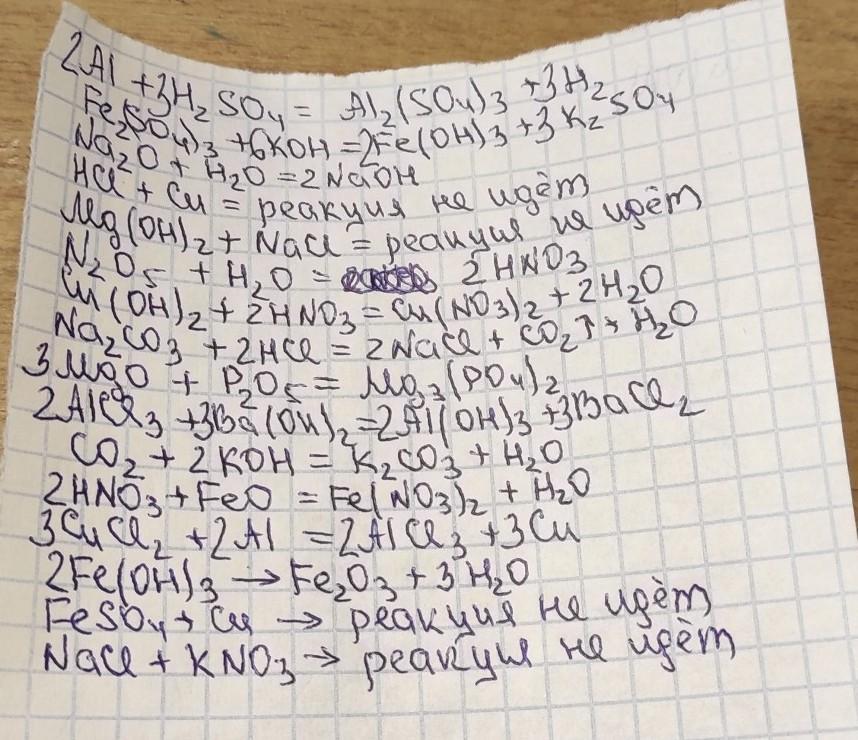 2Al + 3H₂SO₄ = Al₂(SO₄)₃ + 3H₂
Fe₂(SO₄)₃ + 6KOH = 2Fe(OH)₃ + 3K₂SO₄
Na₂O + H₂O = 2NaOH
HCl + Cu = реакция не идёт
Mg(OH)₂ + NaCl = реакция не идёт
N₂O₅ + H₂O = 2HNO₃
Cu(OH)₂ + 2HNO₃ = Cu(NO₃)₂ + 2H₂O
Na₂CO₃ + 2HCl = 2NaCl + CO₂↑ + H₂O
3MgO + P₂O₅ = Mg₃(PO₄)₂
2AlCl₃ + 3Ba(OH)₂ = 2Al(OH)₃ + 3BaCl₂
CO₂ + 2KOH = K₂CO₃ + H₂O
2HNO₃ + FeO = Fe(NO₃)₂ + H₂O
3CuCl₂ + 2Al = 2AlCl₃ + 3Cu
2Fe(OH)₃ → Fe₂O₃ + 3H₂O
FeSO₄ + Cu → реакция не идёт
NaCl + KNO₃ → реакция не идёт